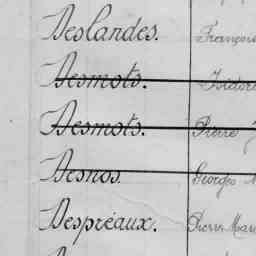 Deslandes. François
Desmots. Isidore
Desmots. Pierre J
Desnos. Georges
Despréaux. Pierre Mar